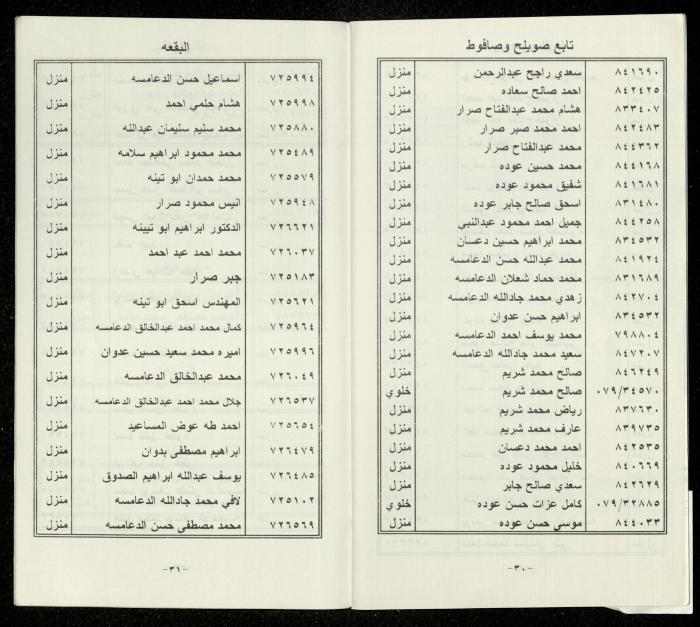 تابع صويلح وصافوط
٨٤١٦٩٠ سعدي راجح عبدالرحمن منزل
٨٤٢٤٢٥ احمد صالح سعاده منزل
٨٣٣٤٠٧ هشام محمد عبدالفتاح صرار منزل
٨٤٢٤٨٣ احمد محمد صبر صرار منزل
٨٤٤٣٦٢ محمد عبدالفتاح صرار منزل
٨٤٤١٦٨ محمد حسين عوده منزل
٨٤١٦٨١ شفيق محمود عوده منزل
٨٣١٤٨٠ اسحق صالح جابر عوده منزل
٨٤٤٢٥٨ جميل احمد محمود عبدالنبي منزل
٨٣٤٥٣٢ محمد ابراهيم حسين دعسان منزل
٨٤١٩٢٤ محمد عبدالله حسن الدعامسه منزل
٨٣١٦٨٩ محمد حماد شعلان الدعامسه منزل
٨٤٢٧٠٤ زهدي محمد جادالله الدعامسه منزل
٨٣٤٥٣٢ ابراهيم حسن عدوان منزل
٧٩٨٨٠٤ محمد يوسف احمد الدعامسه منزل
٨٤٧٢٠٧ سعيد محمد جادالله الدعامسه منزل
٨٤٦٢٤٩ صالح محمد شريم منزل
٠٧٩/٣٤٥٧٠ صالح محمد شريم خلوي
٨٣٧٦٣٠ رياض محمد شريم منزل
٨٣٩٧٣٥ عارف محمد شريم منزل
٨٤٢٥٣٥ احمد محمد دعسان منزل
٨٤٠٦٦٩ خليل محمود عوده منزل
٨٤٢٦٢٩ سعدي صالح جابر منزل
٠٧٩/٣٢٨٨٥ كامل عزات حسن عوده خلوي
٨٤٤٠٣٣ موسي حسن عوده منزل
-٣٠-
البقعه
٧٢٥٩٩٤ اسماعيل حسن الدعامسه منزل
٧٢٥٩٩٨ هشام حلمي احمد منزل
٧٢٥٨٨٠ محمد سليم سليمان عبدالله منزل
٧٢٥٤٨٩ محمد محمود ابراهيم سلامه منزل
٧٢٥٥٧٩ محمد حمدان ابو تينه منزل
٧٢٥٩٤٨ انيس محمود صرار منزل
٧٢٦٦٢١ الدكتور ابراهيم ابو تيينه منزل
٧٢٦٠٣٧ محمد احمد عبد احمد منزل
٧٢٥١٨٣ جبر صرار منزل
٧٢٥٦٢١ المهندس اسحق ابو تينه منزل
٧٢٥٩٦٤ كمال محمد احمد عبدالخالق الدعامسه منزل
٧٢٥٩٩٦ اميره محمد سعيد حسين عدوان منزل
٧٢٦٠٤٩ محمد عبدالخالق الدعامسه منزل
٧٢٦٥٣٧ جلال محمد احمد عبدالخالق الدعامسه منزل
٧٢٥٦٥٤ احمد طه عوض المساعيد منزل
٧٢٦٤٧٩ ابراهيم مصطفى بدوان منزل
٧٢٦٤٨٥ يوسف عبدالله ابراهيم الصدوق منزل
٧٢٥١٠٢ لافي محمد جادالله الدعامسه منزل
٧٢٦٥٦٩ محمد مصطفى حسن الدعامسه منزل
-٣١-